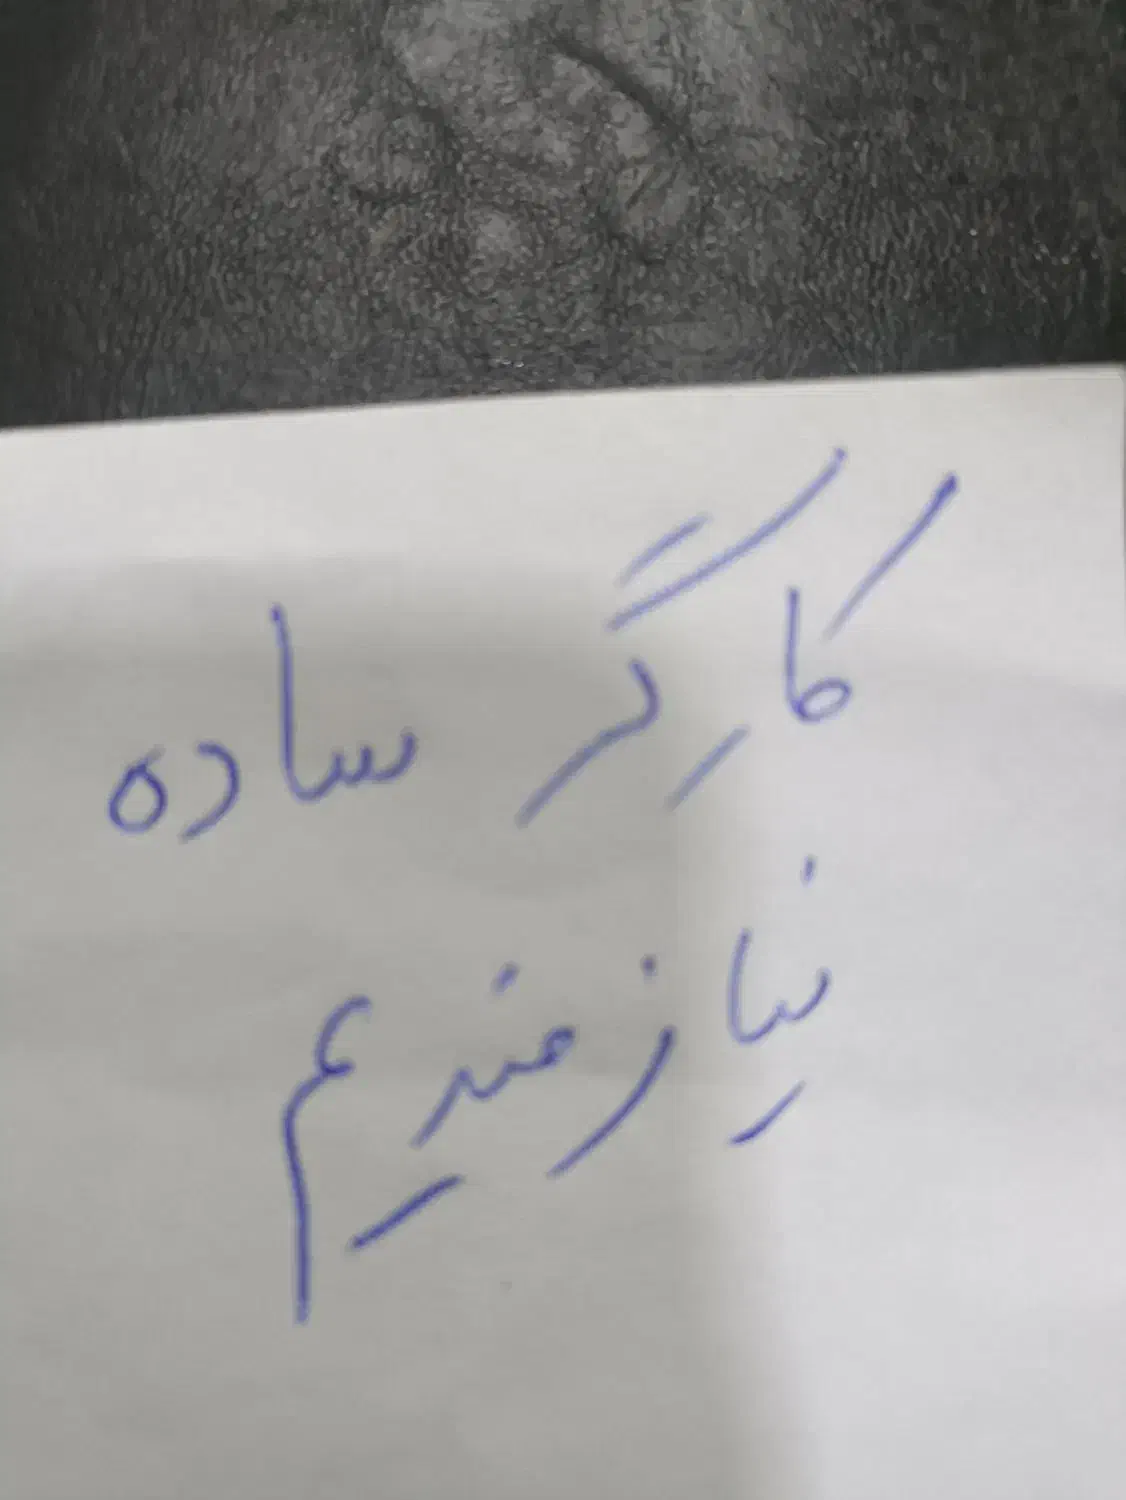 کارگر ساده
نیازمندیم